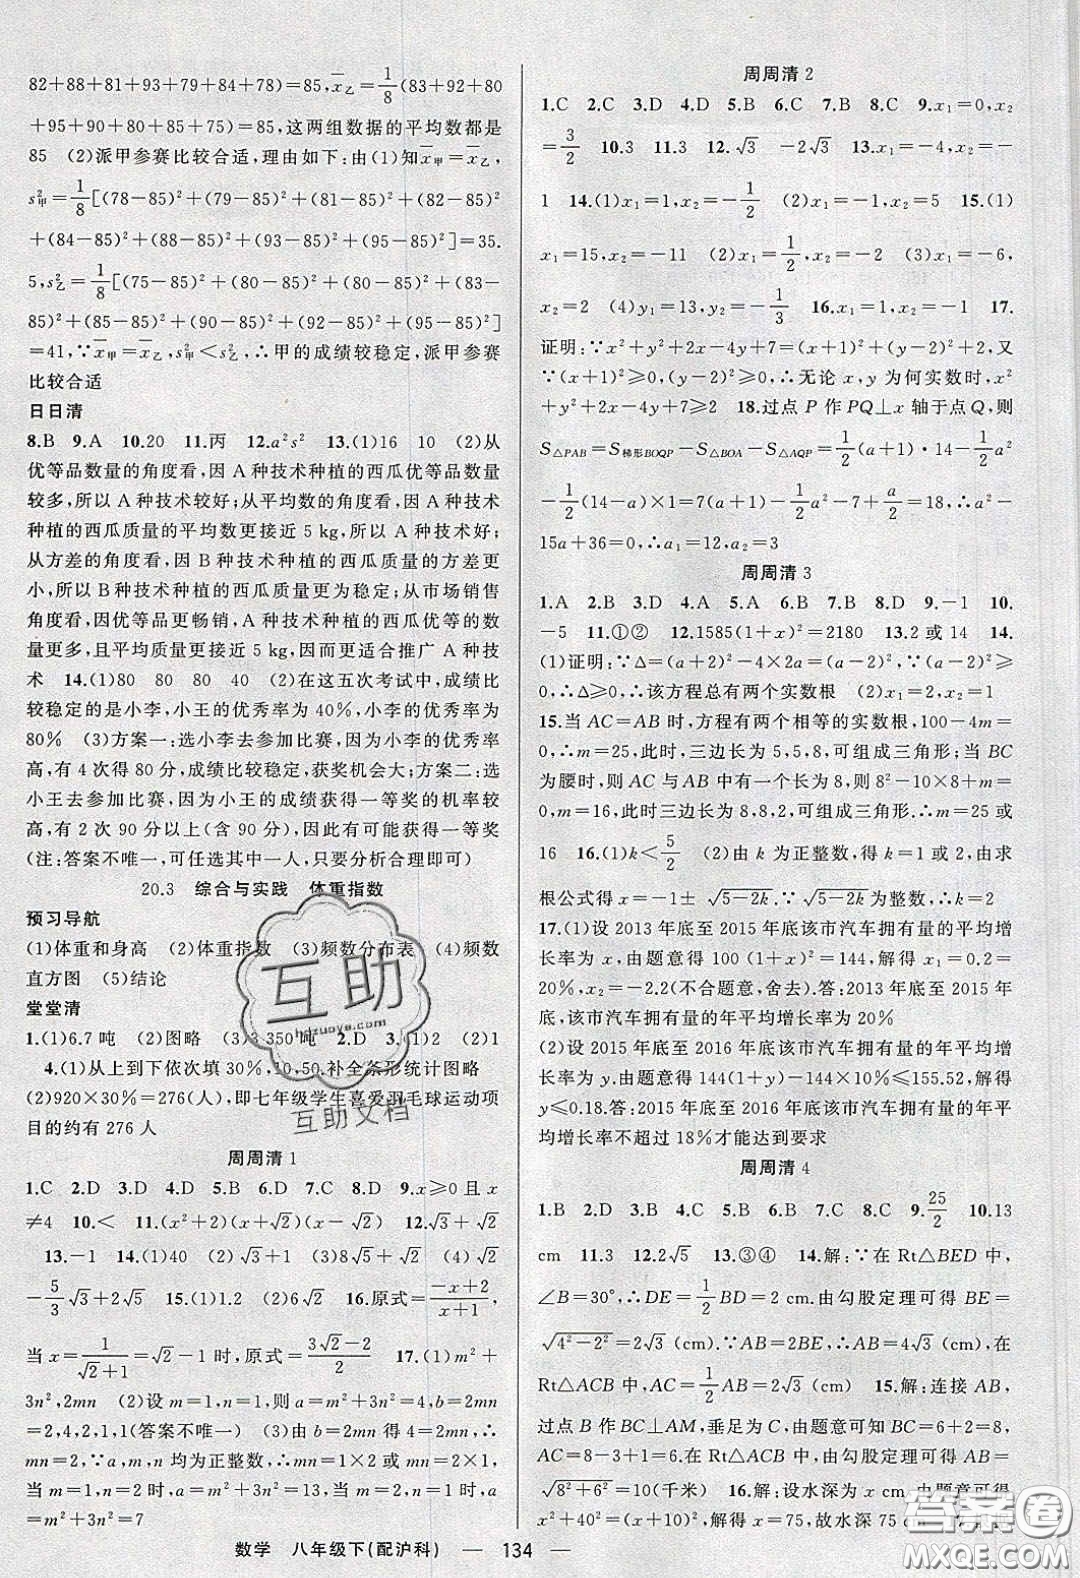 82+88+81+93+79+84+78)=85,x̄乙=1/8(83+92+80
+95+90+80+85+75)=85,这两组数据的平均数都是
85 (2)派甲参赛比较合适,理由如下:由(1)知x̄甲=x̄乙,
s²甲=1/8[(78-85)²+(79-85)²+(81-85)²+(82-85)²
+(84-85)²+(88-85)²+(93-85)²+(95-85)²]=35.
5,s²乙=1/8[(75-85)²+(80-85)²+(80-85)²+(83-
85)²+(85-85)²+(90-85)²+(92-85)²+(95-85)²]
=41,∵x̄甲=x̄乙,s²甲<s²乙,∴甲的成绩较稳定,派甲参赛
比较合适
日日清
8.B 9.A 10.20 11.丙 12.a²s² 13.(1)16 10 (2)从
优等品数量的角度看,因A种技术种植的西瓜优等品数量
较多,所以A种技术较好;从平均数的角度看,因A种技术
种植的西瓜质量的平均数更接近5 kg,所以A种技术好;
从方差的角度看,因B种技术种植的西瓜质量的方差更
小,所以B种技术种植的西瓜质量更为稳定;从市场销售
角度看,因优等品更畅销,A种技术种植的西瓜优等品的数
量更多,且平均质量更接近5 kg,因而更适合推广A种技
术 14.(1)80 80 80 40 (2)在这五次考试中,成绩比
较稳定的是小李,小王的优秀率为40%,小李的优秀率为
80% (3)方案一:选小李去参加比赛,因为小李的优秀率
高,有4次得80分,成绩比较稳定,获奖机会大;方案二:选
小王去参加比赛,因为小王的成绩获得一等奖的机率较
高,有2次90分以上(含90分),因此有可能获得一等奖
(注:答案不唯一,可任选其中一人,只要分析合理即可)
20.3 综合与实践 体重指数
预习导航
(1)体重和身高 (2)体重指数 (3)频数分布表 (4)频数
直方图 (5)结论
堂堂清
1.(1)6.7吨 (2)图略 (3)3 350吨 2.D 3.(1)2 (2)1
4.(1)从上到下依次填30%,10,50.补全条形统计图略
(2)920×30%=276(人),即七年级学生喜爱羽毛球运动项
目的约有276人
周周清1
1.C 2.D 3.D 4.D 5.B 6.D 7.C 8.D 9.x≥0且x
≠4 10.< 11.(x²+2)(x+√2)(x-√2) 12.√3+√2
13.-1 14.(1)40 (2)√3+1 (3)8√5+√3 (4)√2
-5/3√3+2√5 15.(1)1.2 (2)6√2 16.原式=(-x+2)/(x+1),
当x=1/(√2+1)=√2-1时,原式=(3√2-2)/2 17.(1)m²+
3n²,2mn (2)设m=1,n=1,则a=m²+3n²=4,b=2mn
=2,4,2,1,1(答案不唯一) (3)由b=2mn得4=2mn,mn
=2,∵a,m,n均为正整数,∴mn=1×2或mn=2×1,
当m=1,n=2时,a=m²+3n²=13;当m=2,n=1时,a=
m²+3n²=7
周周清2
1.C 2.C 3.D 4.D 5.B 6.C 7.B 8.C 9.x₁=0,x₂
=3/2 10.3 11.3 12.√3 -2√3 13.x₁=-4,x₂=-
1 14.(1)x₁=1,x₂=-1/2 (2)x₁=-1,x₂=5 15.(1)
x₁=15,x₂=-11 (2)x₁=1/2,x₂=-1/2 (3)x₁=-6,
x₂=2 (4)y₁=13,y₂=-1/3 16.x₁=1,x₂=-1 17.
证明:∵x²+y²+2x-4y+7=(x+1)²+(y-2)²+2,又
∵(x+1)²≥0,(y-2)²≥0,∴无论x,y为何实数时,x²
+y²+2x-4y+7≥2 18.过点P作PQ⊥x轴于点Q,则
S△PAB=S梯形BOQP-S△BOA-S△AQP=1/2(a+1)·1/2a²-
1/2(14-a)×1=7(a+1)-1/2a²-7+a/2=18,∴a²-
15a+36=0,∴a₁=12,a₂=3
周周清3
1.A 2.B 3.D 4.A 5.A 6.B 7.B 8.D 9.-1 10.
-5 11.①② 12.1585(1+x)²=2180 13.2或14 14.
(1)证明:∵Δ=(a+2)²-4×2a=(a-2)²,∵(a-2)²≥
0,∴Δ≥0,∴该方程总有两个实数根 (2)x₁=2,x₂=1
15.当AC=AB时,方程有两个相等的实数根,100-4m=
0,∴m=25,此时,三边长为5,5,8,可组成三角形;当BC
为腰时,则AC与AB中有一个长为8,则8²-10×8+m=
0,m=16,此时三边长为8,8,2,可组成三角形.∴m=25或
16 16.(1)k<5/2 (2)由k为正整数,得k=1或2,由求
根公式得x=-1±√5-2k.∵√5-2k为整数,∴k=2
17.(1)设2013年底至2015年底该市汽车拥有量的年平均增长
率为x,由题意得100(1+x)²=144,解得x₁=0.2=
20%,x₂=-2.2(不合题意,舍去).答:2013年底至2015年
底,该市汽车拥有量的年平均增长率为20%
(2)设2015年底至2016年底该市汽车拥有量的年平均增长
率为y,由题意得144(1+y)-144×10%≤155.52,解得y
≤0.18.答:2015年底至2016年底该市汽车拥有量的年平
均增长率不超过18%才能达到要求
周周清4
1.B 2.D 3.B 4.C 5.C 6.D 7.C 8.C 9.25/2 10.13
cm 11.3 12.2√5 13.③④ 14.解:∵在Rt△BED中,
∠B=30°,∴DE=1/2BD=2 cm.由勾股定理可得BE=
√4²-2²=2√3(cm).∵AB=2BE,∴AB=4√3(cm),在
Rt△ACB中,AC=1/2AB=2√3(cm) 15.解:连接AB,
过点B作BC⊥AM,垂足为C,由题意可知BC=6+2=8,
AC=8-3+1=6.在Rt△ACB中,由勾股定理可得AB=
√8²+6²=10(千米) 16.解:设水深为x cm,由题意可得
x²+40²=(x+10)²,解得x=75,故水深75 cm
数学 八年级下(配沪科) — 134 —
互助
hdzuoye.com
互助文档
答案圈
MXQE.COM